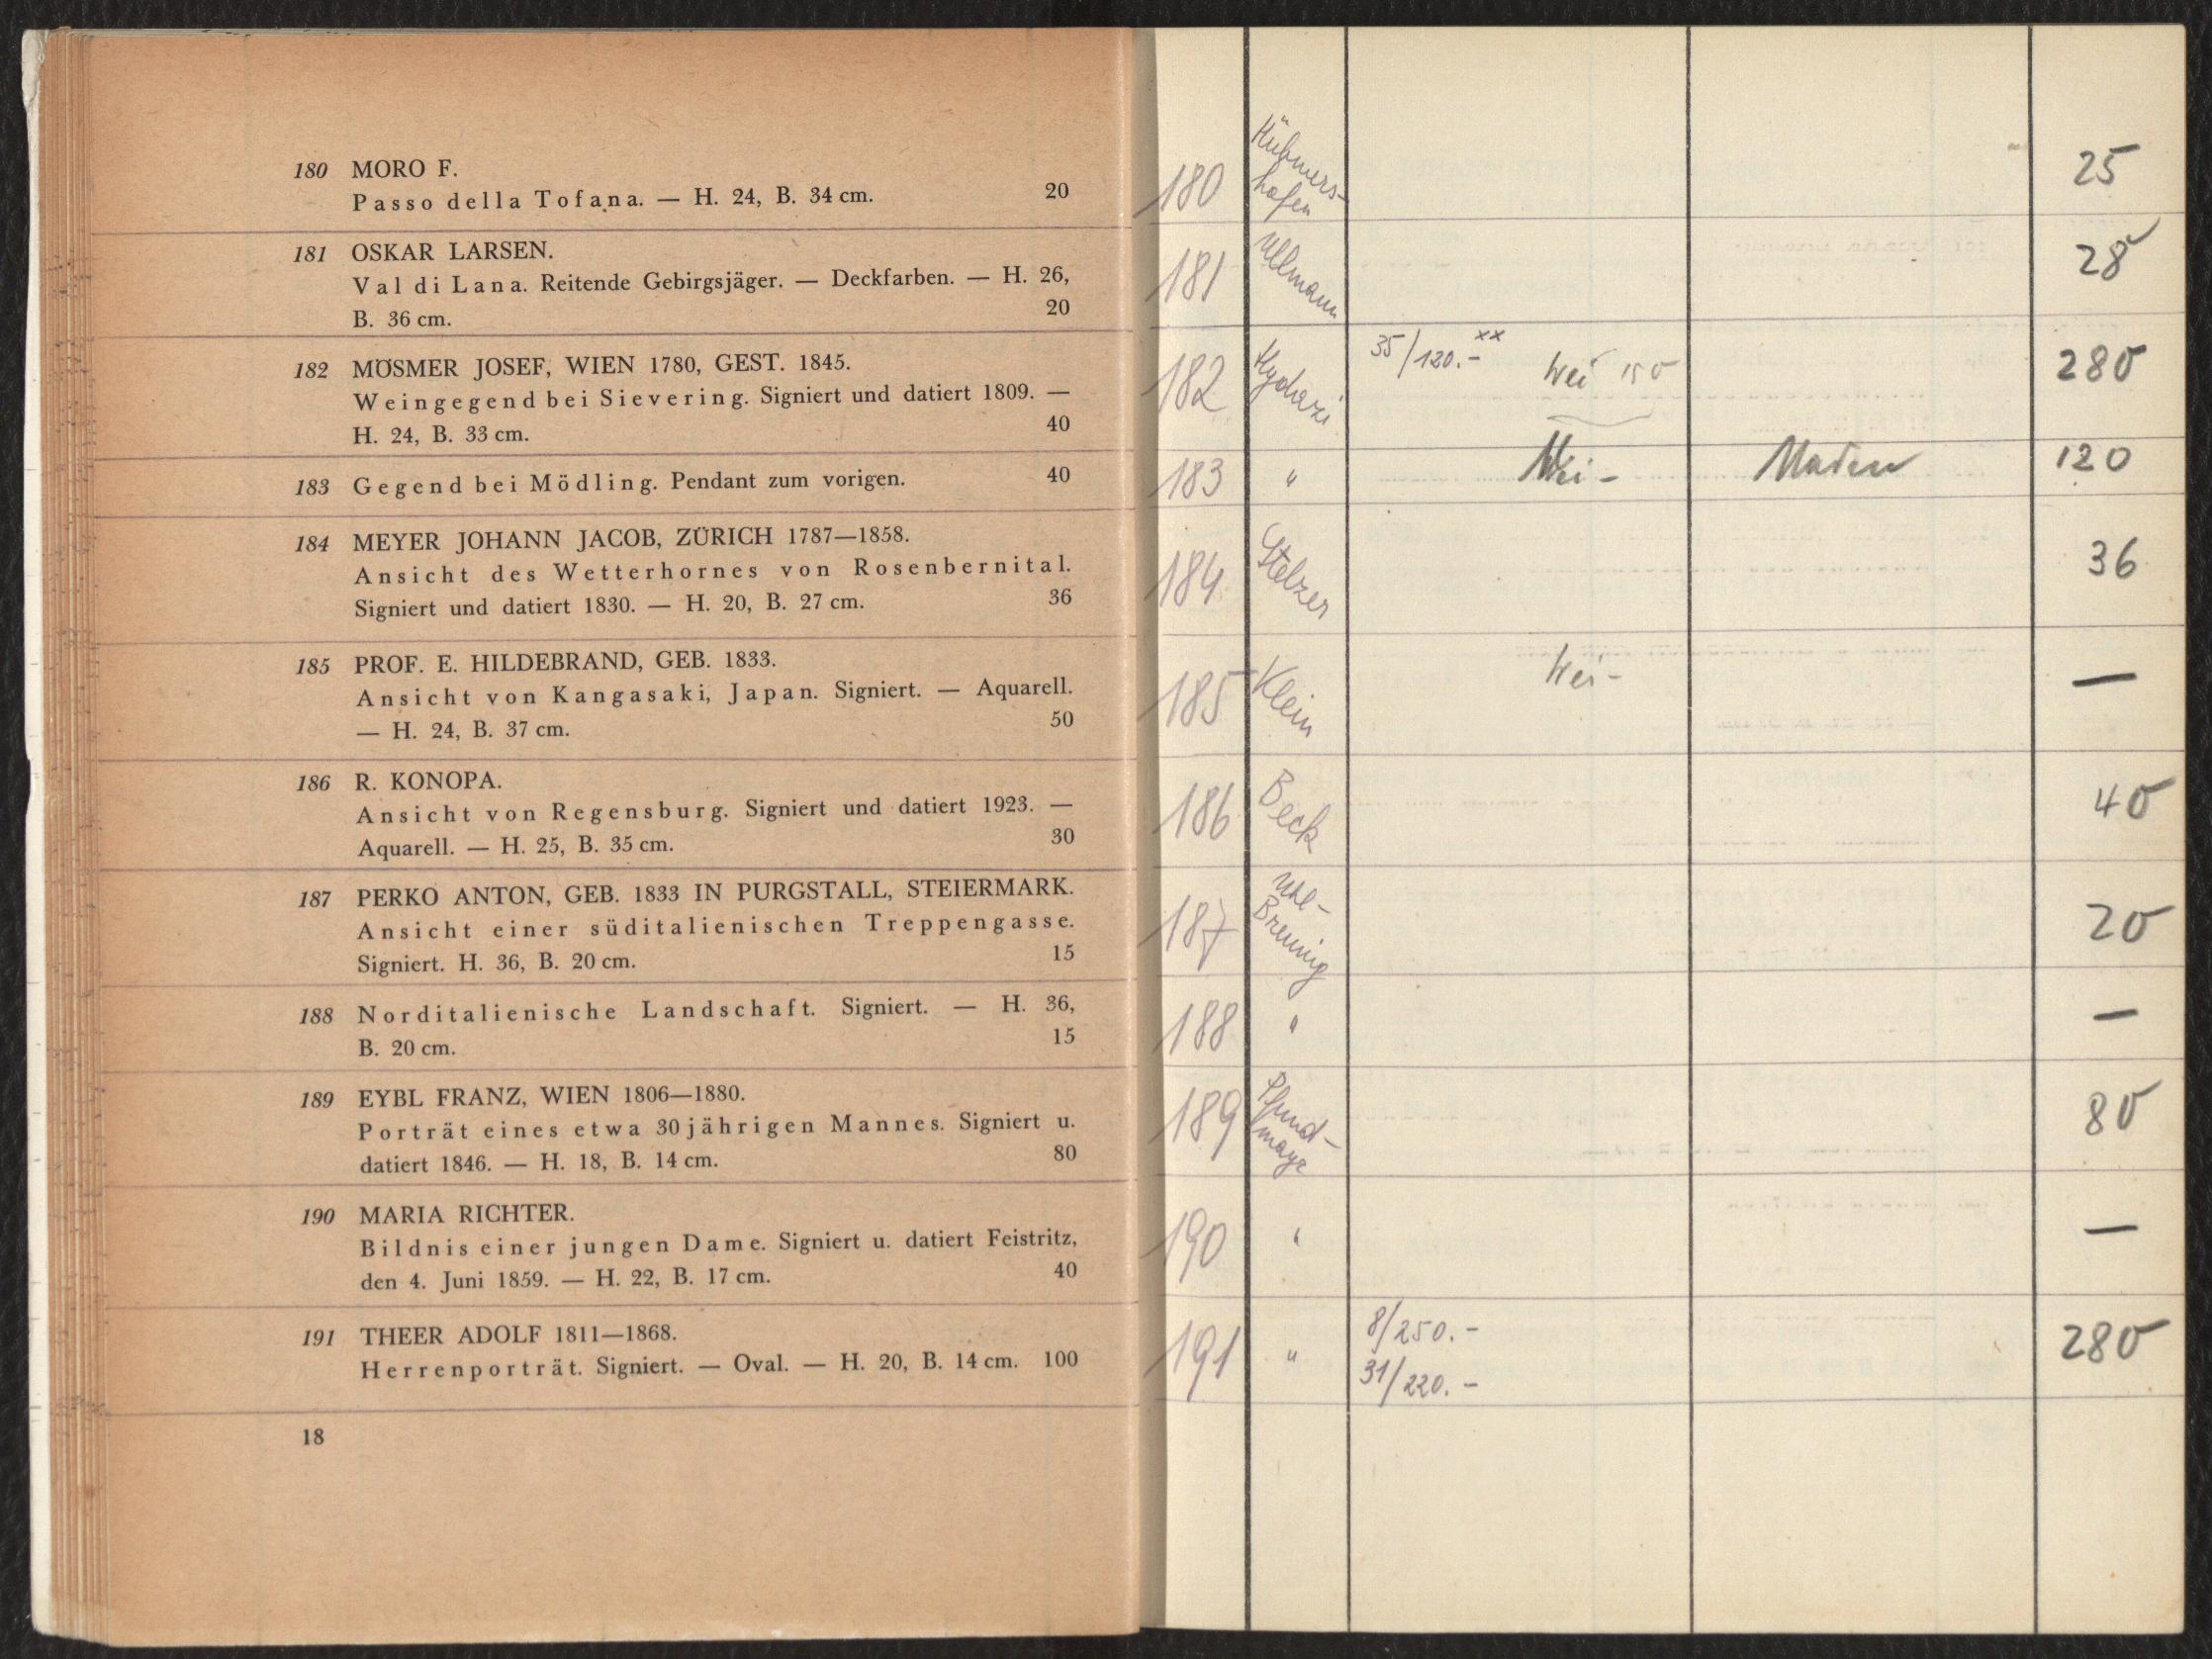 180 MORO F.
Passo della Tofana. — H. 24, B. 34 cm. 20
181 OSKAR LARSEN.
Val di Lana. Reitende Gebirgsjäger. — Deckfarben. — H. 26,
B. 36 cm. 20
182 MÖSMER JOSEF, WIEN 1780, GEST. 1845.
Weingegend bei Sievering. Signiert und datiert 1809. —
H. 24, B. 33 cm. 40
183 Gegend bei Mödling. Pendant zum vorigen. 40
184 MEYER JOHANN JACOB, ZÜRICH 1787—1858.
Ansicht des Wetterhornes von Rosenbernital.
Signiert und datiert 1830. — H. 20, B. 27 cm. 36
185 PROF. E. HILDEBRAND, GEB. 1833.
Ansicht von Kangasaki, Japan. Signiert. — Aquarell.
— H. 24, B. 37 cm. 50
186 R. KONOPA.
Ansicht von Regensburg. Signiert und datiert 1923. —
Aquarell. — H. 25, B. 35 cm. 30
187 PERKO ANTON, GEB. 1833 IN PURGSTALL, STEIERMARK.
Ansicht einer süditalienischen Treppengasse.
Signiert. H. 36, B. 20 cm. 15
188 Norditalienische Landschaft. Signiert. — H. 36,
B. 20 cm. 15
189 EYBL FRANZ, WIEN 1806—1880.
Porträt eines etwa 30jährigen Mannes. Signiert u.
datiert 1846. — H. 18, B. 14 cm. 80
190 MARIA RICHTER.
Bildnis einer jungen Dame. Signiert u. datiert Feistritz,
den 4. Juni 1859. — H. 22, B. 17 cm. 40
191 THEER ADOLF 1811—1868.
Herrenporträt. Signiert. — Oval. — H. 20, B. 14 cm. 100
18
180 Hühners-
hofen 25
181 Ullmann 28
182 35/120.- xx Wei 150 280
183 " Wei - 120
184 Stelzer 36
185 Klein Wei - —
186 Beck 40
187 Uhl-
Breunig 20
188 " —
189 Pfund-
mayr 80
190 " —
191 " 8/250.- 280
31/220.-